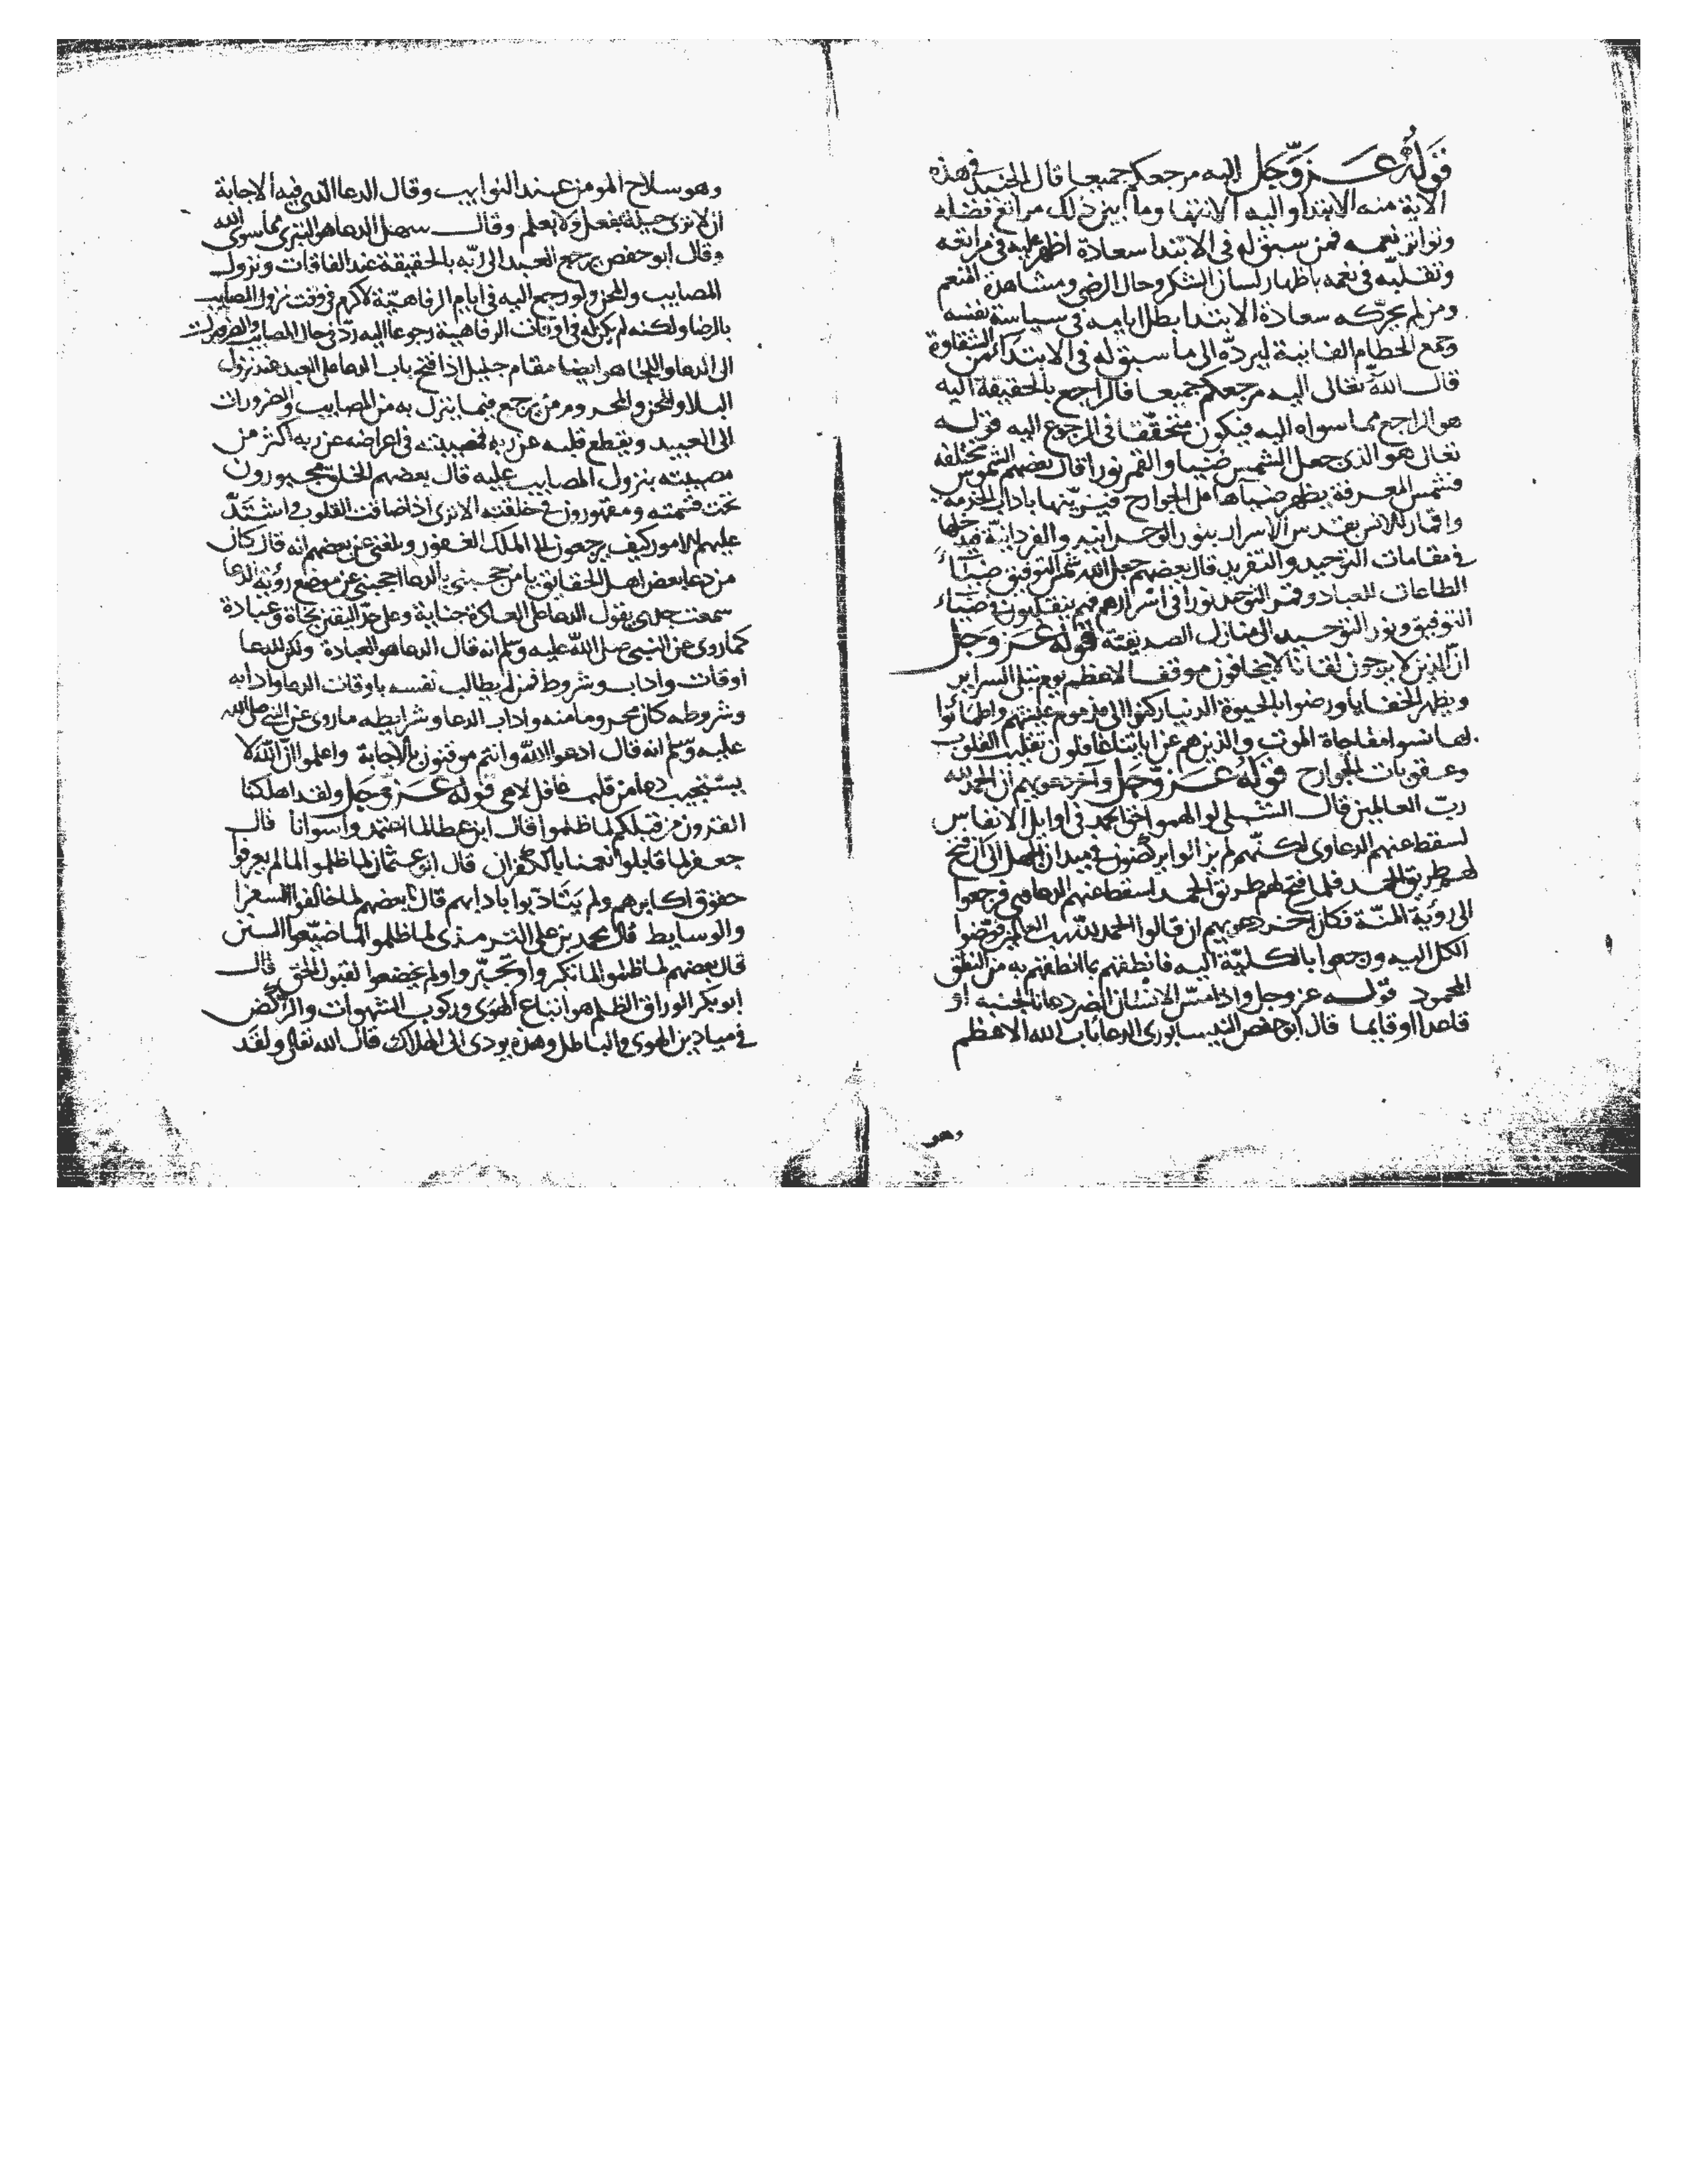 قوله عز وجل اليه مرجعكم جميعا قال الجنيد في هذه
الاية منه الابتدا واليه الانتها وما بين ذلك مراتع فضله
وتواتر نعمه فمن سبق له في الابتدا سعادة اظهر عليه في مراتعه
وتقلبه في نعمه باظهار لسان الشكر وحال الرضي ومشاهدة المنعم
ومن لم يجر له سعادة الابتدا بطل ايامه في سياسة نفسه
وجمع الحطام الفانية ليرده الى ما سبق له في الابتداء من الشقاوة
قال الله تعالى اليه مرجعكم جميعا فالراجع بالحقيقة اليه
هو الراجع مما سواه اليه فيكون متحققا في الرجوع اليه قوله
تعالى هو الذي جعل الشمس ضيا والقمر نورا قال بعضهم الشموس مختلفة
فشمس المعرفة يظهر ضياها على الجوارح فيزينها باداب الخدمة
واقمار الانس تقدس الاسرار بنور الوحدانية والفردانية
في مقامات التوحيد والتفريد قال بعضهم جعل الله شمس التوفيق ضياء
الطاعات للعباد وقمر التوحيد نورا في اسرارهم فهم يتقلبون في ضياء
التوفيق ونور التوحيد الى منازل الصديقية قوله عز وجل
ان الذين لا يرجون لقانا لا يخافون موقف الاعظم يوم تبلى السراير
ويظهر الخفايا ورضوا بالحيوة الدنيا ركنوا الى مذموم عيشهم واطمانوا
بها نسوا مفاجاة الموت والذين هم عن اياتنا غافلون تقليب القلوب
وعقوبات الجوارح قوله عز وجل وآخر دعويهم ان الحمد لله
رب العالمين قال الشبلي لو الهموا حق الحمد في اوايل الانفاس
لسقط عنهم الدعاوى لكنهم لم يزالوا يركضون في ميدان الجهل الى ان فتح
لهم طريق الحمد فلما فتح لهم طريق الحمد سقط عنهم الدعاوي فرجعوا
الى رؤية المنة فكان آخر دعويهم ان قالوا الحمد لله رب العالمين فوضوا
الكل اليه ورجعوا بالكلية اليه فانطقهم بما انطقهم به من النطق
المحمود قوله عز وجل واذا مس الانسان الضر دعانا لجنبه او
قاعدا او قايما قال ابو حفص النيسابوري الدعا باب الله الاعظم
وهو
وهو سلاح المومن عند النوايب وقال الدعا الذي فيه الاجابة
ان لا ترى حيلة بفعل ولا بعلم وقال سهل الدعا هو التبري مما سوى الله
وقال ابو حفص يرجع العبد الى ربه بالحقيقة عند الفاقات ونزول
المصايب والمحن ولو رجع اليه في ايام الرفاهية لاكرم في وقت نزول المصايب
بالرضا ولكنه لم يكن له في اوقات الرفاهية رجوعا اليه رد في حال المصايب والضرورات
الى الدعا واللجا هو ايضا مقام جليل اذا فتح باب الدعا على العبد عند نزول
البلاو والمحن والمحروم من يرجع فيما ينزل به من المصايب والضرورات
الى العبيد ويقطع قلبه عن ربه فمصيبته في اعراضه عن ربه اكثر من
مصيبته بنزول المصايب عليه قال بعضهم الخلق مجبورون
تحت قسمته ومقهورون في خلقته الا ترى اذا ضاقت القلوب واشتد
عليهم الامور كيف يرجعون الى الملك الغفور وبلغني عن بعضهم انه قال كان
من دعا بعض اهل الحقايق يا من حجبني بالدعا احجبني عن موضع رؤية الدعا
سمعت جدي يقول الدعا على العادة جناية وعلى حد اليقين نجاة وعبادة
كما روي عن النبي صلى الله عليه وسلم انه قال الدعا هو العبادة ولكن للدعا
اوقات واداب وشروط فمن لم يطالب نفسه باوقات الدعا وادابه
وشروطه كان محروما منه واداب الدعا وشرايطه ما روي عن النبي صلى الله
عليه وسلم انه قال ادعوا الله وانتم موقنون بالاجابة واعلموا ان الله لا
يستجيب دعا من قلب غافل لاهي قوله عز وجل ولقد اهلكنا
القرون من قبلكم لما ظلموا قال ابن عطا لما اعتمدوا سوانا قال
جعفر لما قابلوا نعمنا بالكفران قال ابو عثمان لما ظلموا لما لم يعرفوا
حقوق اكابرهم ولم يتادبوا بادابهم قال بعضهم لما خالفوا السفرا
والوسايط قال محمد بن علي الترمذي لما ظلموا لما ضيعوا السنن
قال بعضهم لما ظلموا لما تكبروا وتجبروا ولم يخضعوا لقبول الحق قال
ابو بكر الوراق الظلم هو اتباع الهوى وركوب الشهوات والركض
في ميادين الهوى والباطل وهذه يودى الى الهلاك قال الله تعالى ولقد